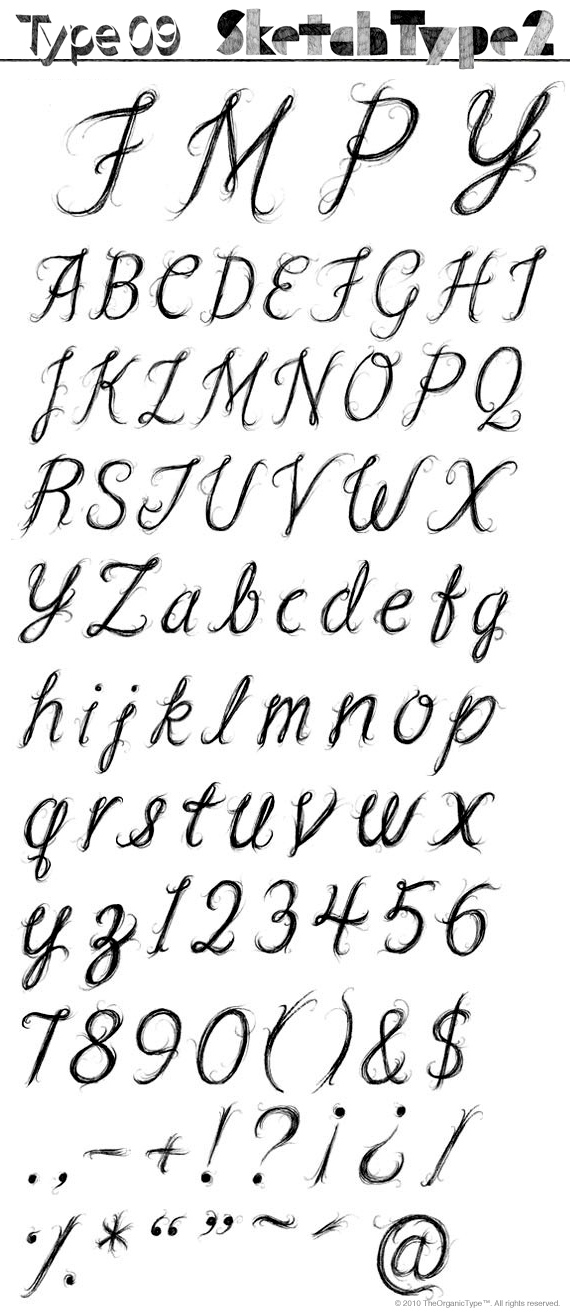 Type 09 SketchType 2
F M P Y
A B C D E F G H I
J K L M N O P Q
R S T U V W X
Y Z a b c d e f g
h i j k l m n o p
q r s t u v w x
y z 1 2 3 4 5 6
7 8 9 0 ( ) & $
. , - + ! ? ¡ ¿ /
% * “ ” ~ ´ @
© 2010 TheOrganicType™. All rights reserved.